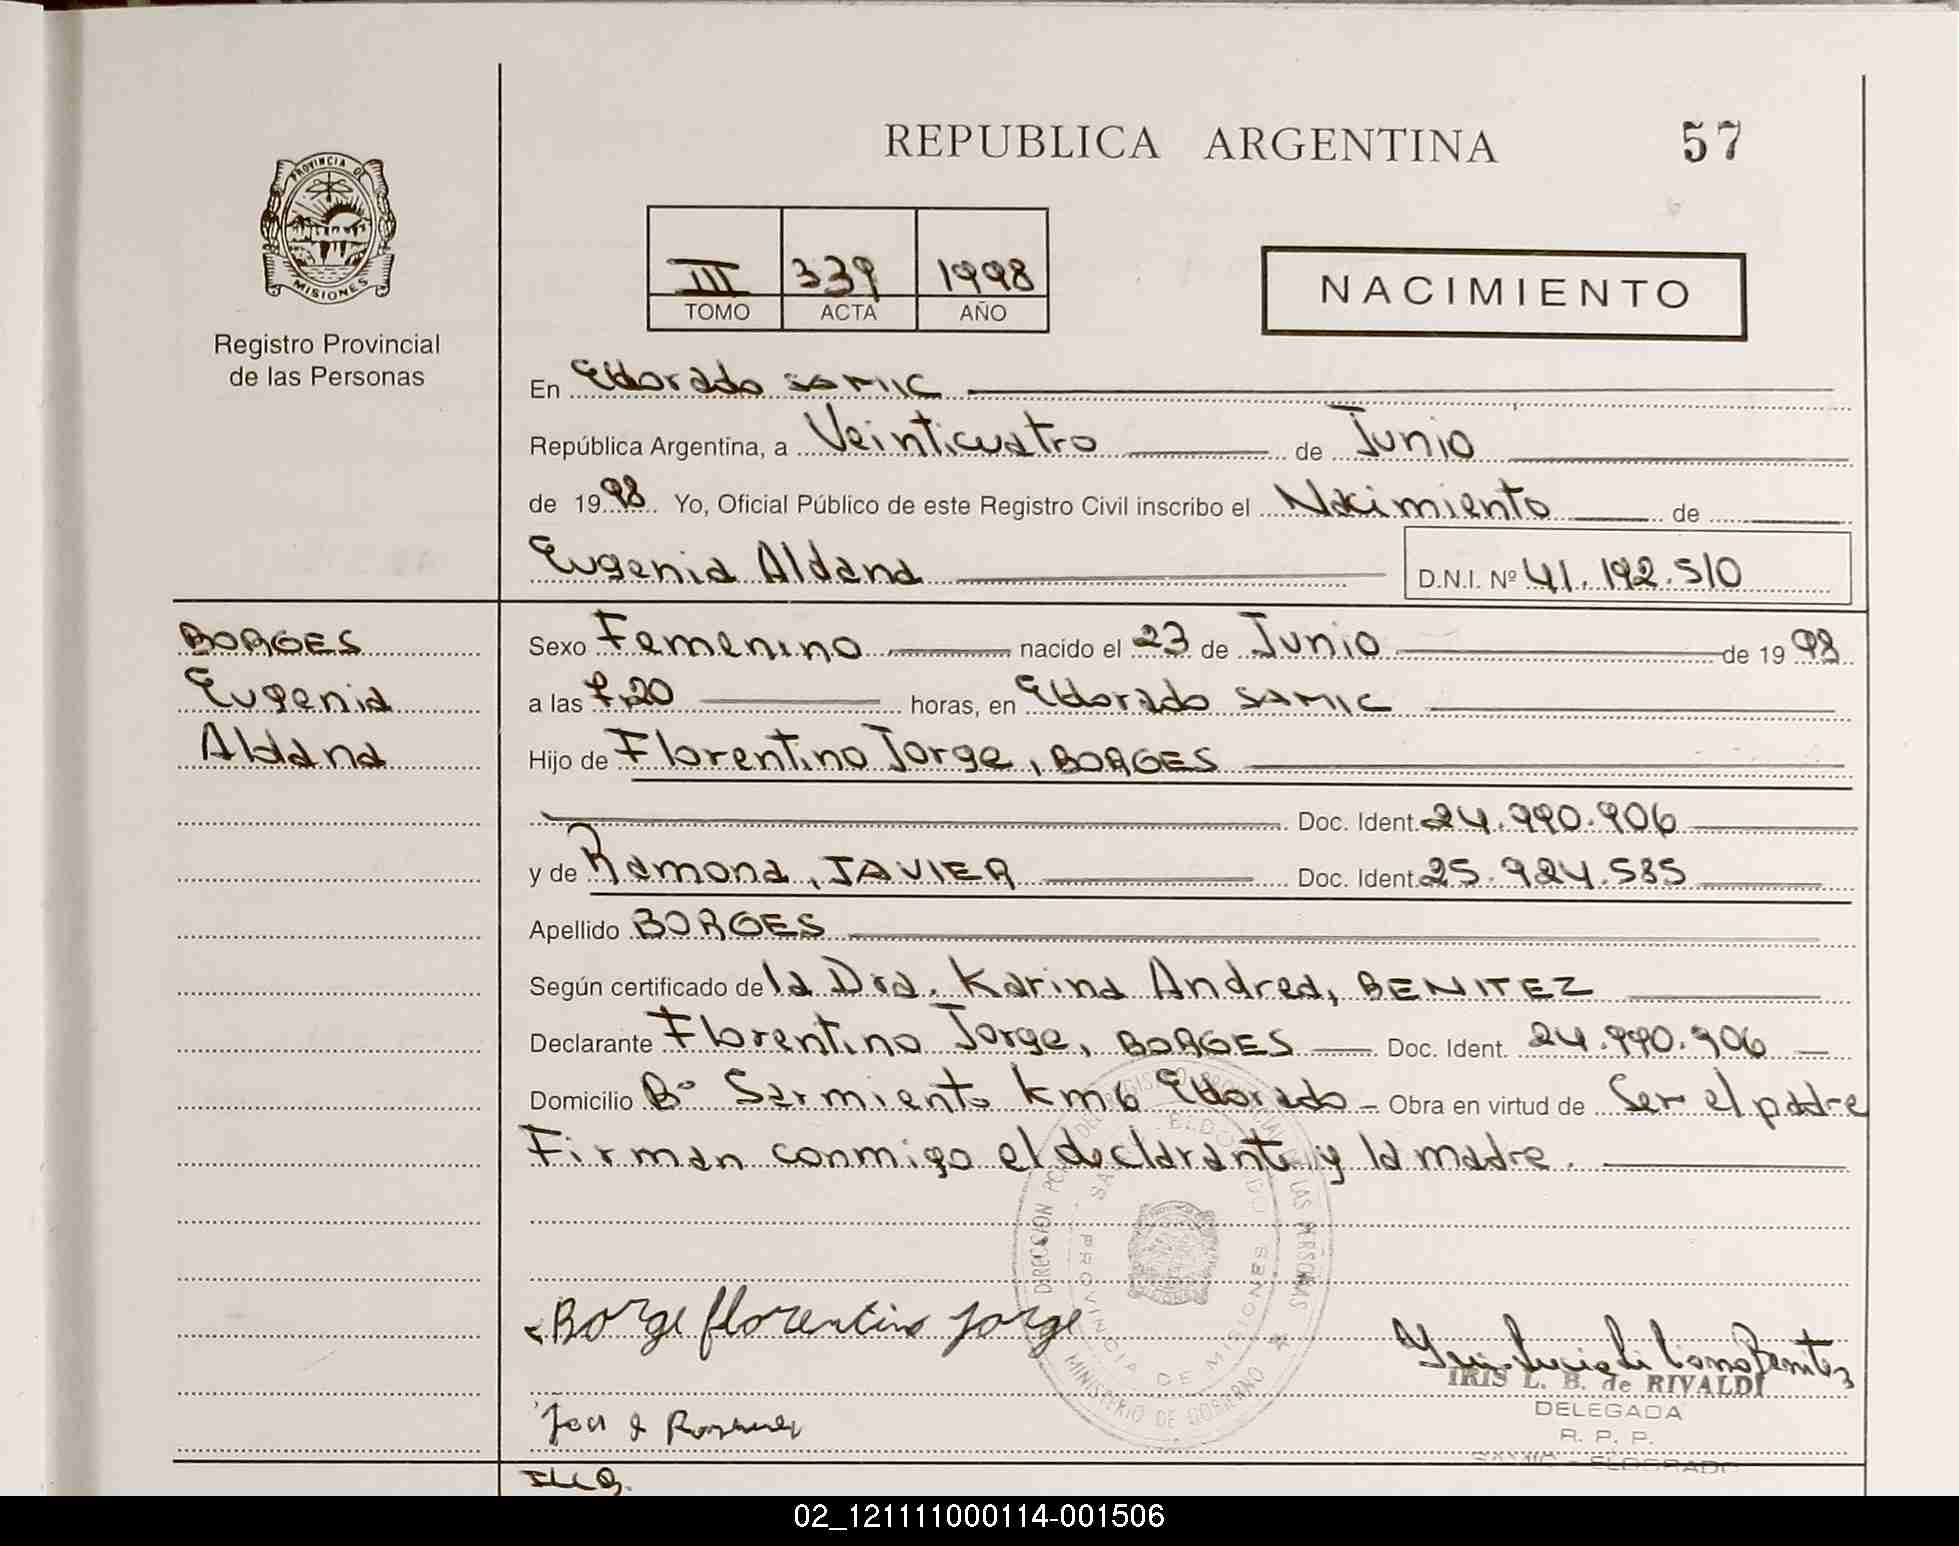 REPUBLICA ARGENTINA
57
PROVINCIA DE
MISIONES
Registro Provincial
de las Personas
III 339 1998
TOMO ACTA AÑO
NACIMIENTO
En Eldorado SAMIC
República Argentina, a Veinticuatro de Junio
de 1998 Yo, Oficial Público de este Registro Civil inscribo el Nacimiento de
Eugenia Aldana D.N.I. Nº 41.192.510
BORGES
Eugenia
Aldana
Sexo Femenino nacido el 23 de Junio de 1998
a las 7,20 horas, en Eldorado SAMIC
Hijo de Florentino Jorge, BORGES
Doc. Ident. 24.990.906
y de Ramona, JAVIER Doc. Ident. 25.924.585
Apellido BORGES
Según certificado de la Dra. Karina Andrea, BENITEZ
Declarante Florentino Jorge, BORGES Doc. Ident. 24.990.906
Domicilio Bº Sarmiento km6 Eldorado - Obra en virtud de Ser el padre
Firman conmigo el declarante y la madre.
DIRECCION LAS PERSONAS
PROVINCIA DE MISIONES
MINISTERIO DE GOBIERNO
Borge florentino Jorge
IRIS L. B. de RIVALDI
DELEGADA
R. P. P.
SAMIC - ELDORADO
02_121111000114-001506